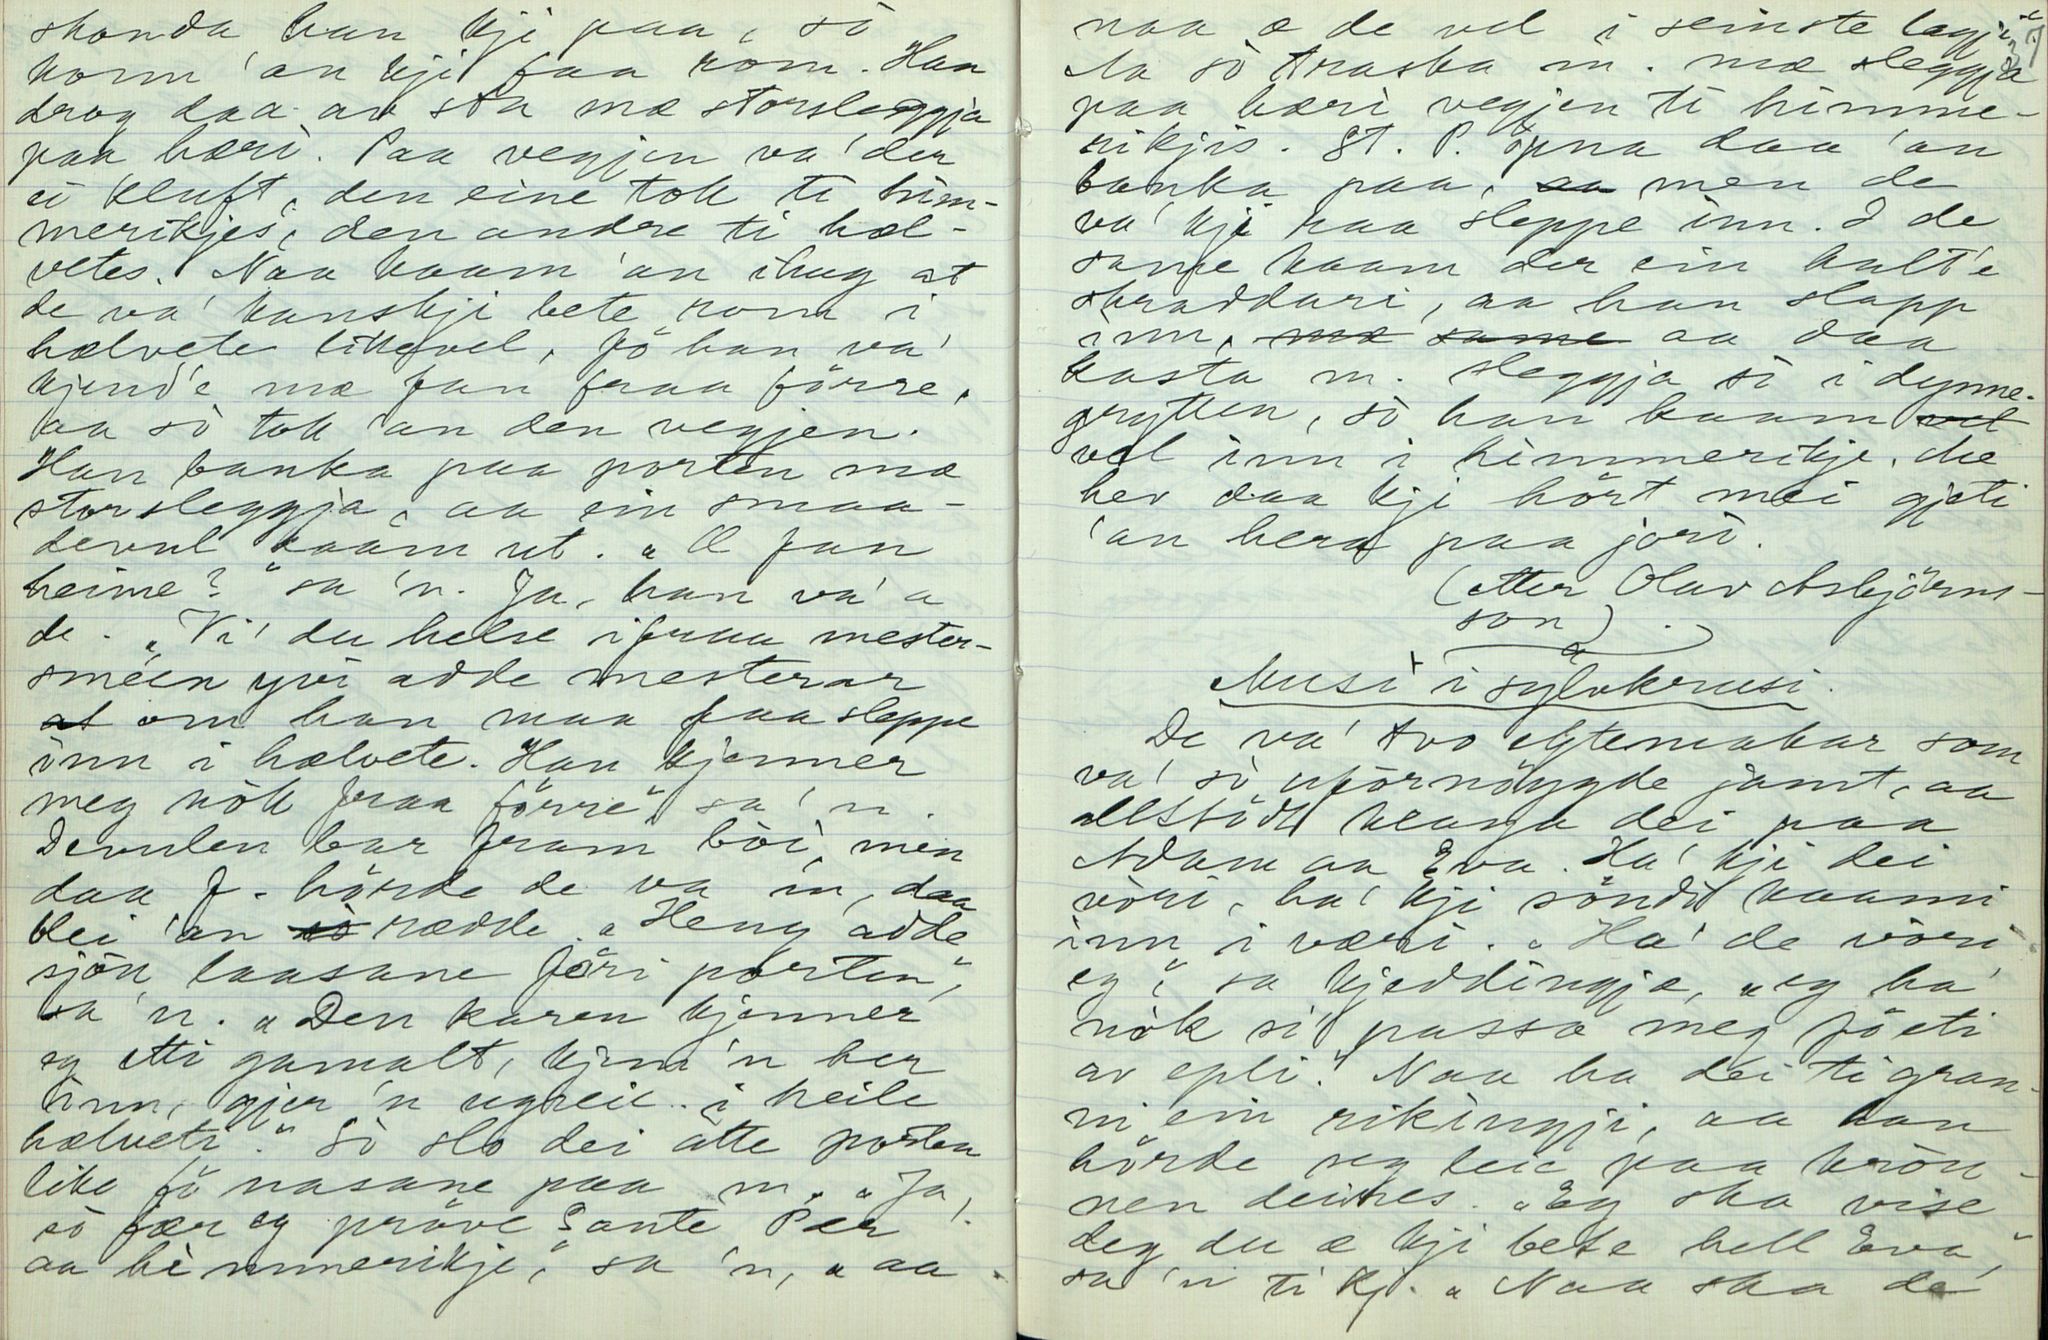 skonda han kji paa, so
komm 'an kji faa rom. Han
drog daa av sta mæ storsleggja
paa hæri. Paa vegjen va' der
ei kluft, den eine tok ti him-
merikjes, den andre ti hæl-
vetes. Naa kaam 'an ihug at
de va' kanskji bete rom i
hælvete likevel, fö han va'
kjend'e mæ fan fraa förre,
aa sò tok 'an den vegjen.
Han banka paa porten mæ
storsleggja, aa ein smaa-
devul kaam ut. "Æ fan
heime?" sa 'n. Ja, han va' a
de. "Vi' du helse ifraa mester-
smeen yvi adde mesterar
at om han maa faa sleppe
inn i hælvete. Han kjenner
meg nòk fraa förre" sa' n.
Devulen bar fram bòi, men
daa f. hörde de va 'n, daa
blei 'an so rædde. "Heng adde
sjòu laasane föri porten",
sa 'n. "Den karen kjenner
eg etti gamalt, kjem 'n her
inn, gjer 'n ugreie i heile
hælveti." Sò slo dei atte porten
like fö nasane paa m. "Ja,
sò fær eg pröve Sante Per
aa himmerikje," sa 'n, "aa
naa æ de vel i seinste lagji."
Aa sò traska m. mæ sleggja
paa hæri vegjen ti himme-
rikjis. St. P. òpna daa 'an
banka paa, aa men de
va' kji naa sleppe inn. I de
same kaam der ein halt'e
skraddari, aa han slapp
inn, mæ same aa daa
kasta m. sleggja si i dynne-
grytten, sò han kaam vel
vel inn i himmerikje. Me
hev daa kji hört mei gjeti
'an hera paa jori.
(etter Olav Asbjörns-
son).
Musi i sylvkrusi.
De va' tvo egtemakar som
va' sò uförnöygde jamt, aa
allstödt klaga dei paa
Adam aa Eva. Ha' kji dei
vòri, ha' kji söndi kaami
inn i væri. "Ha' de vòri
eg", sa kjeddingja, "eg ha'
nòk si' passa meg fö eti
av epli." Naa ha dei ti gran-
ni ein rikingji, aa han
hörde seg leie paa krön-
nen deires. "Eg ska vise
deg du æ kji bete hell Eva,"
sa 'n ti kj. "Naa ska de'